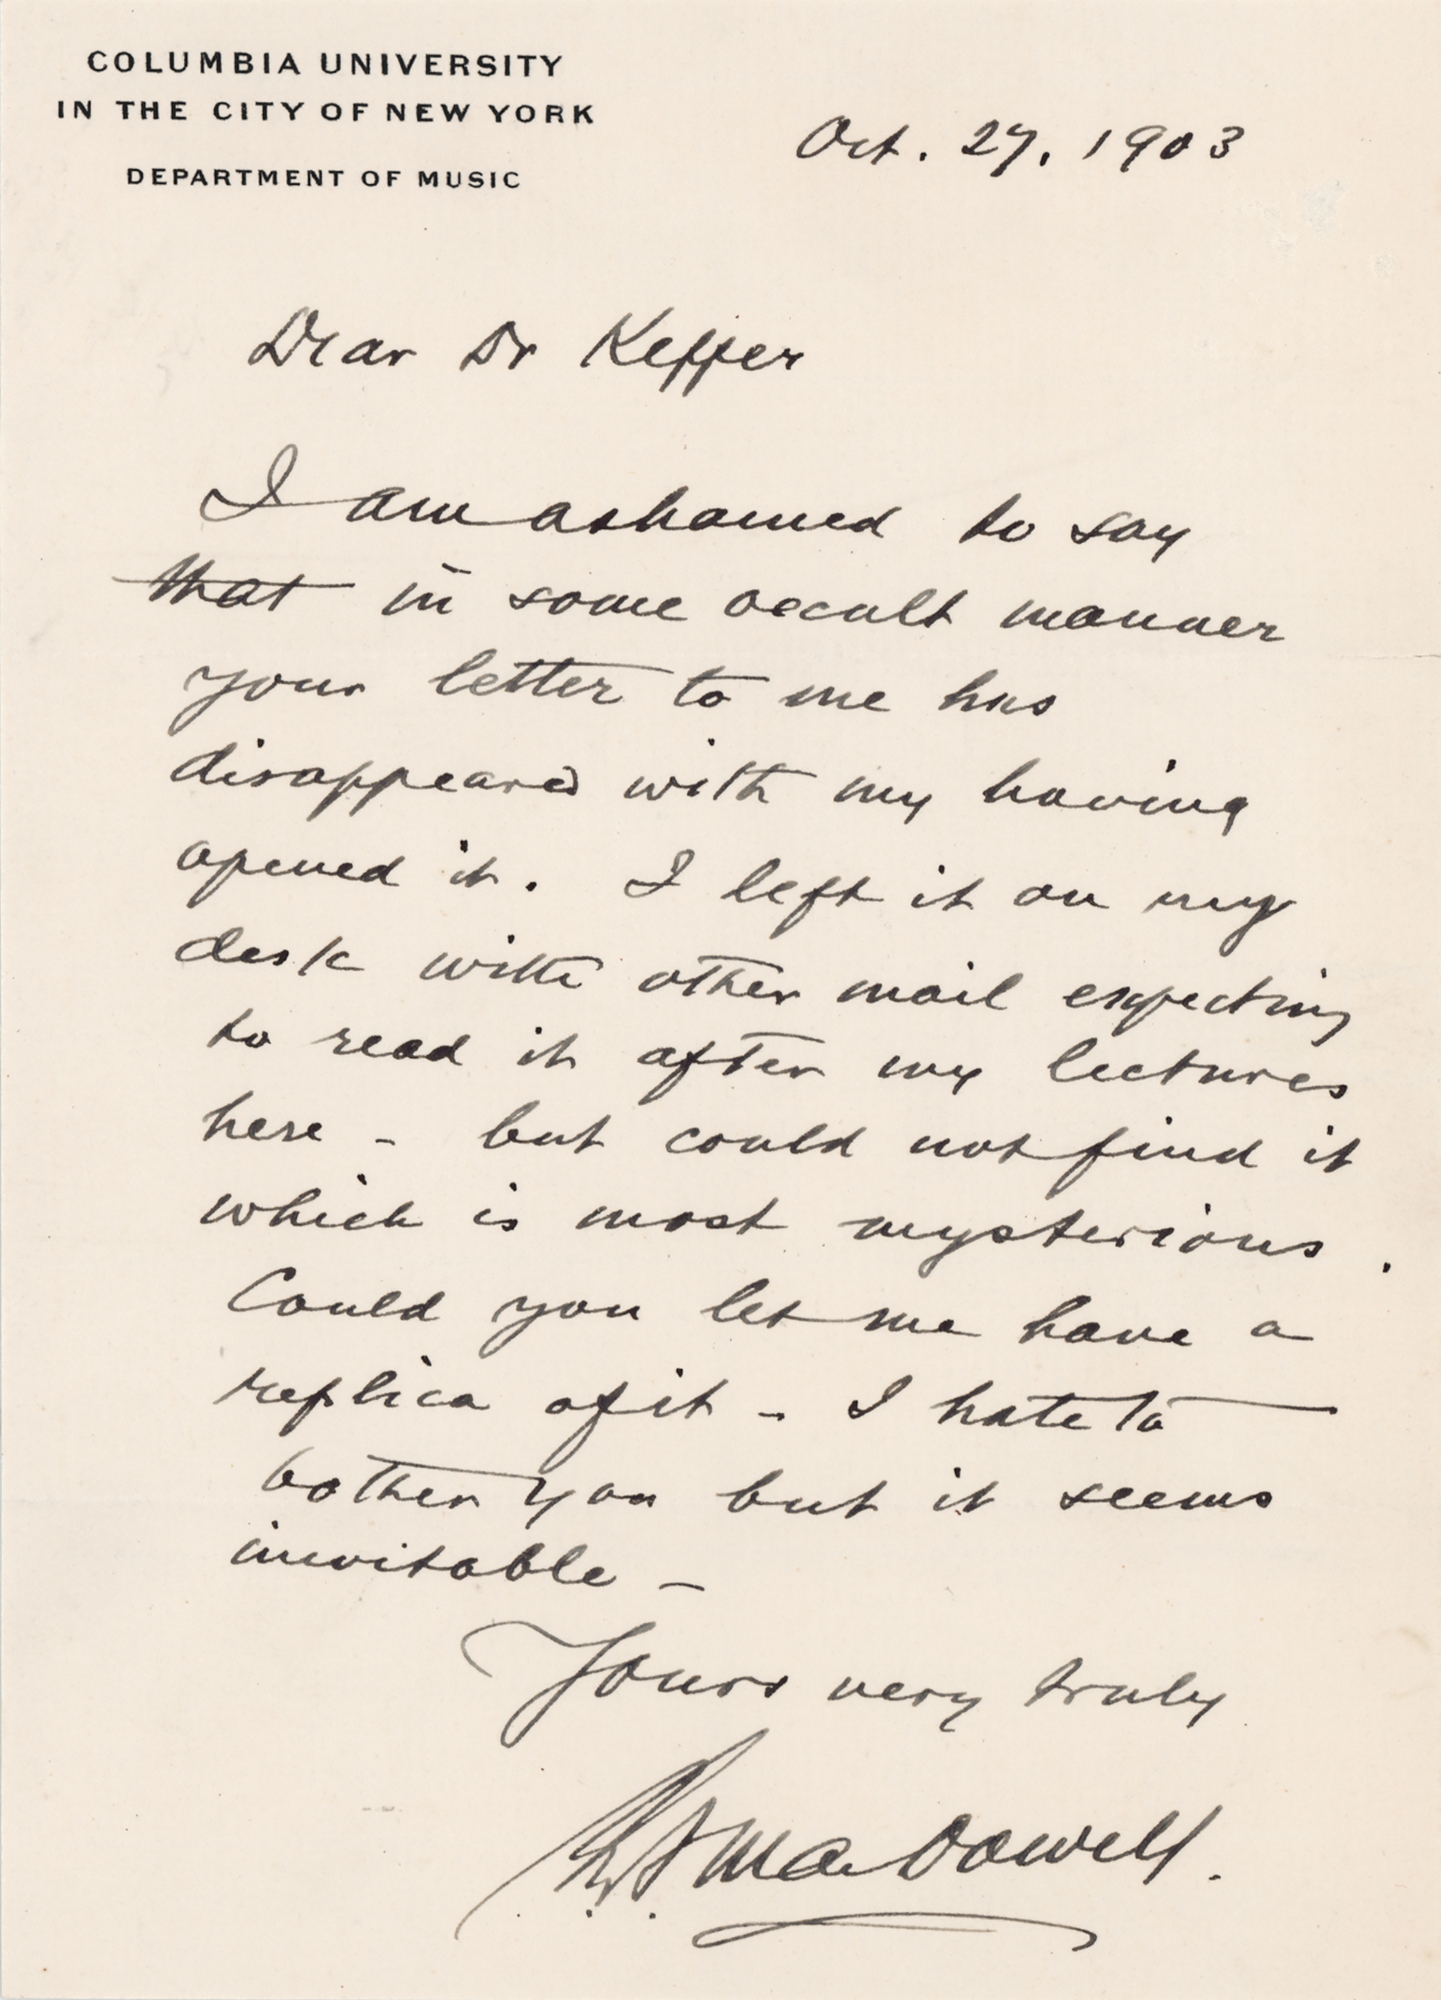 COLUMBIA UNIVERSITY
IN THE CITY OF NEW YORK
DEPARTMENT OF MUSIC
Oct. 27, 1903
Dear Dr Keffer
I am ashamed to say
that in some occult manner
your letter to me has
disappeared with my having
opened it. I left it on my
desk with other mail expecting
to read it after my lectures
here - but could not find it
which is most mysterious.
Could you let me have a
replica of it - I hate to
bother you but it seems
inevitable -
Yours very truly
MacDowell.